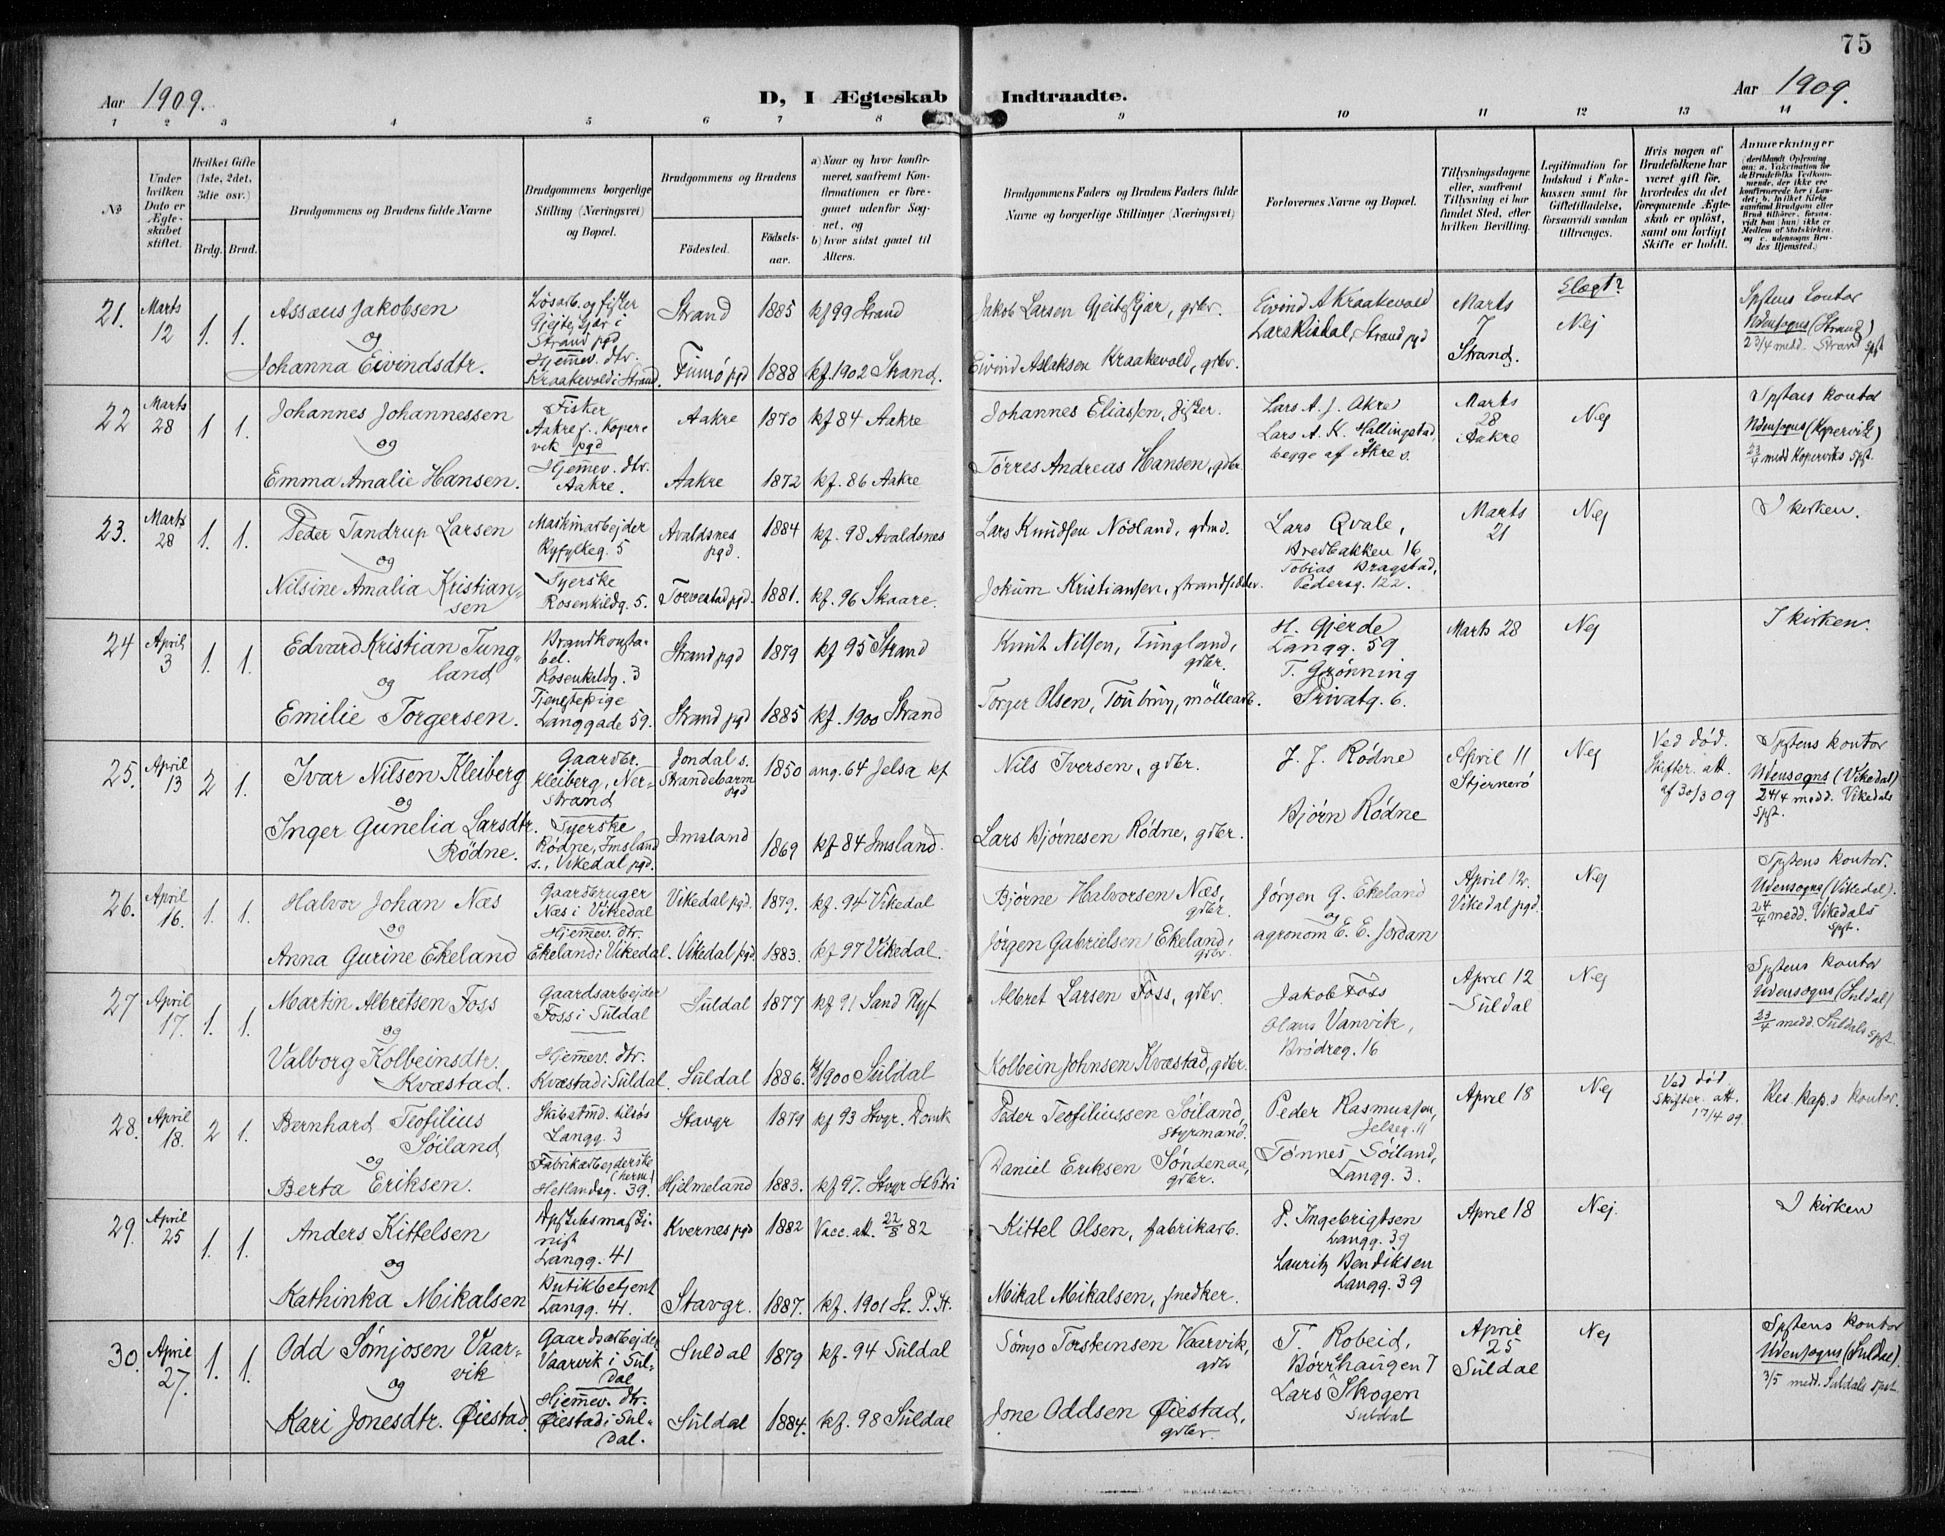 75
Aar 1909.
D, I Ægteskab Indtraadte.
Aar 1909.
1 2 3 4 5 6 7 8 9 10 11 12 13 14
No
Under hvilken Dato er Ægteskabet stiftet.
Hvilket Gifte (1ste, 2det, 3die osv.)
Brdg. Brud.
Brudgommens og Brudens fulde Navne
Brudgommens borgerlige Stilling (Næringsvei) og Bopæl.
Brudgommens og Brudens
Fødested.
Fødsels-aar.
a) Naar og hvor konfirmeret, saafremt Konfirmationen er foregaaet udenfor Sognet, og
b) hvor sidst gaaet til Alters.
Brudgommens Faders og Brudens Faders fulde Navne og borgerlige Stillinger (Næringsvei)
Forlovernes Navne og Bopæl.
Tillysningsdagene eller, saafremt Tillysning ei har fundet Sted, efter hvilken Bevilling.
Legitimation for Indskud i Enkekassen samt for Giftetilladelse, forsaavidt saadan tiltrænges.
Hvis nogen af Brudefolkene har været gift før, hvorledes da det foregaaende Ægteskab er opløst, samt om lovligt Skifte er holdt.
Anmerkninger
(deriblandt Oplysning om: a. Vaccination for de Brudefolks Vedkommende, der ikke ere konfirmerede her i Landet; b. Hvilket Kirkesamfund Brudgom eller Brud tilhører, forsaavidt han (hun) ikke er Medlem af Statskirken, og c. udensogns Brudes Hjemsted.)
21. Marts 12 1. 1. Assæus Jakobsen
og
Johanna Eivindsdtr.
Løsarb. og fisker
Strand pgd
Hjemmev. dtr.
Kraakevold i Strand.
Strand 1885 kf 99 Strand
1888 kf. 1902 Strand.
Jakob Larsen gdbr.
Eivind Aslaksen Kraakevold, gdbr.
Eivind A Kraakevold
Lars Risdal, Strand pgd
Marts 7 Strand.
Slægt?
Nej
Spstens kontor
Udensogns (Strand)
23/4 medd. Strand Spst
22 Marts 28 1 1. Johannes Johannessen
og
Emma Amalie Hansen.
Fisker
Aakre s. Kopervik pgd
Hjemmev. dtr.
Aakre.
Aakre 1870 kf 84 Aakre
Aakre 1872 kf. 86 Aakre
Johannes Eliassen, fisker.
Tørres Andreas Hansen, gdbr.
Lars A. J. Akre
Lars A. K. Hallingstad,
begge af Akre s.
Marts 28 Aakre
Nej
Spstens kontor
Udensogns (Kopervik)
23/4 medd Koperviks Spst.
23. Marts 28 1. 1. Peder Tandrup Larsen
og
Nilsine Amalia Kristiansen
Maskinarbejder
Ryfylkeg. 5
Syerske
Rosenkildg. 5.
Avaldsnes pgd. 1884 kf. 98 Avaldsnes
Torvestad pgd. 1881. kf. 96 Skaare.
Lars Knudsen Nødland, gdmd.
Jokum Kristiansen, strandsidder.
Lars Qvale,
Bredbakken 16
Tobias Bragstad,
Pedersg. 122.
Marts 21
Nej
I kirken.
24 April 3 1. 1. Edvard Kristian Tungland
og
Emilie Torgersen.
Brandkonstabel.
Rosenkildg. 3
Tjenestepige
Langgade 59.
Strand pgd 1879 kf 95 Strand
Strand pgd 1885 kf. 1900 Strand
Knut Nilsen, Tungland, gdbr.
Torger Olsen, Toubrug, møllearb.
H. Gjerde
Langg. 59
T. Grønning
Privatg. 6.
Marts 28
Nej
I kirken.
25. April 13 2 1. Ivar Nilsen Kleiberg
og
Inger Gunelia Larsdtr. Rødne.
Gaardbr.
Kleiberg, Nerstrand
Syerske
Rødne, Imsland s., Vikedal pgd.
Jondal s. Strandebarm pgd 1850 ang. 64 Jelsa kf
Imsland 1869 kf 84 Imsland.
Nils Iversen, gdbr.
Lars Bjørnesen Rødne, gdbr.
J. J. Rødne
Bjørn Rødne
April 11 Stjernerø
Nej
Ved død.
Skifter. att.
af 30/3 09
Spstens kontor
Udensogns (Vikedal)
24/4 medd. Vikedals Spst.
26. April 16. 1. 1. Halvor Johan Næs
og
Anna Gurine Ekeland
Gaardbruger
Næs i Vikedal
Hjemmev. dtr.
Ekeland i Vikedal.
Vikedal pgd. 1879. kf. 94 Vikedal
Vikedal pgd 1883. kf 97 Vikedal.
Bjørne Halvorsen Næs, gdbr.
Jørgen Gabrielsen Ekeland, gdbr.
Jørgen G. Ekeland
og
agronom E. E. Jordan
April 12. Vikedal pgd.
Nej
Spstens kontor.
Udensogns (Vikedal).
24/4 medd. Vikedals Spst.
27 April 17. 1. 1. Martin Albretsen Foss
og
Valborg Kolbeinsdtr. Kvæstad.
Gaardsarbejder
Foss i Suldal
Hjemmev. dtr.
Kvæstad i Suldal.
Suldal 1877 kf 91 Sand Ryf
Suldal 1886. kf 1900 Suldal
Albret Larsen Foss, gdbr.
Kolbein Johnsen Kvæstad, gdbr.
Jakob Foss
Olaus Vanvik,
Brødreg. 16
April 12 Suldal
Nej
Spstens kontor
Udensogns (Suldal)
23/4 medd. Suldals Spst.
28. April 18. 2 1. Bernhard Teofilius Søiland
og
Berta Eriksen.
Skibstmd. tilsøs
Langg. 3
Fabrikarbejderske (herm.)
Hetlandsg. 39.
Stavgr 1879 kf 93 Stvgr. Domk
Hjelmeland 1883. kf 97. Stvgr St Petri
Peder Teofiliussen Søiland, styrmand.
Daniel Eriksen Søndenaa, gdbr.
Peder Rasmussen,
Jelseg. 11
Tønnes Søiland,
Langg. 3.
April 18
Nej
Ved død
Skifter. att.
17/4 09.
Res. kap.s kontor.
29. April 25 1. 1. Anders Kittelsen
og
Kathinka Mikalsen
Langg. 41
Butikbetjent
Langg. 41.
Kvernes pgd 1882 Vacc. att. 22/8 82
Stavgr. 1887. kf. 1901 St. P. K.
Kittel Olsen, fabrikarb.
Mikal Mikalsen, snedker.
P. Ingebrigtsen
Langg. 39
Lauritz Bendiksen
Langg. 39
April 18
Nej.
I kirken
30. April 27. 1. 1. Odd Sømjosen Vaarvik
og
Kari Jonesdtr. Øiestad.
Gaardsarbejder
Vaarvik i Suldal
Hjemmev. dtr.
Øiestad i Suldal.
Suldal 1879 kf. 94 Suldal
Suldal 1884. kf. 98 Suldal
Sømjo Torsteinsen Vaarvik, gdbr
Jone Oddsen Øiestad, gdbr.
T. Robeid,
Børrehaugen 7
Lars Skogen
Suldal
April 25 Suldal
Nej
Spstens kontor
Udensogns (Suldal).
3/5 medd. Suldals Spst.